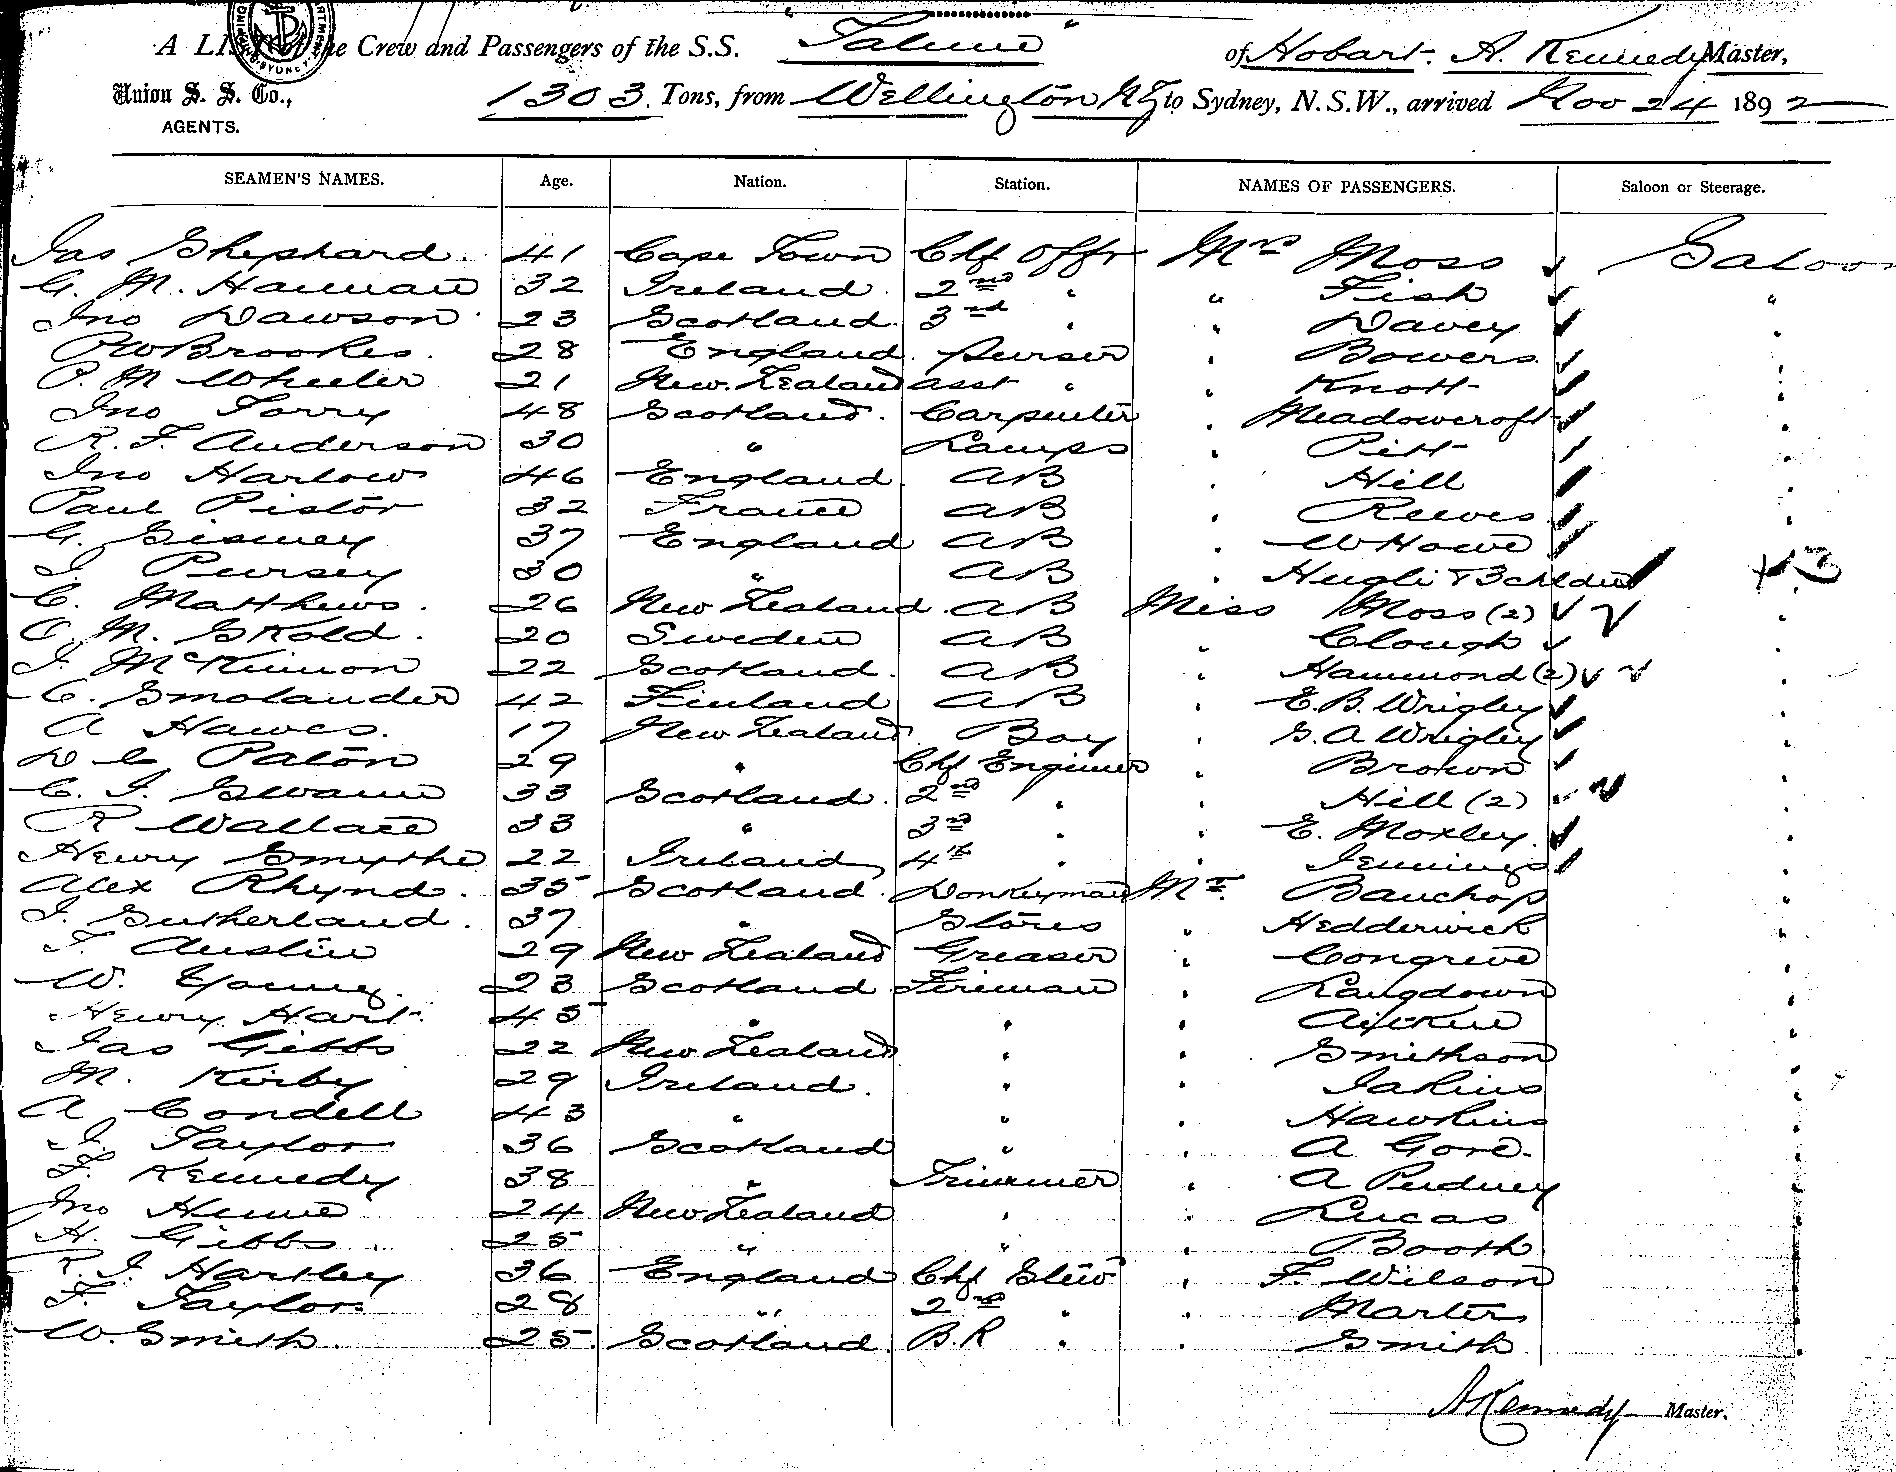 A LIST of the Crew and Passengers of the S.S. "Talune" of Hobart. A. Kennedy Master,
Union S. S. Co., AGENTS. 1303 Tons, from Wellington NZ to Sydney, N.S.W., arrived Nov 24 1892
SEAMEN'S NAMES. Age. Nation. Station. NAMES OF PASSENGERS. Saloon or Steerage.
Jas Shephard 41 Cape Town Chf Offr Mrs Moss Saloon
G. M. Hannan 32 Ireland 2nd " " Fish "
Jno Dawson 23 Scotland 3rd " " Davey "
P W Brookes 28 England Purser " Bowers "
P. M Wheeler 21 New Zealand asst " " Knott "
Jno Torry 48 Scotland Carpenter " Meadowcroft "
R. F. Anderson 30 " Lamps " Pitt "
Jno Harlow 46 England AB " Hill "
Paul Pistor 32 France AB " Reeves "
G. 37 England AB " W Howe "
J. Pursey 30 " AB " Hugli & 3 children + 3
C. Matthews 26 New Zealand AB Miss Moss (2) "
O M. Skold 20 Sweden AB " Clough "
J. McKinnon 22 Scotland AB " Hammond (2) "
C. Smolander 42 Finland AB " E. B. Wrigley "
A Hawes 17 New Zealand Boy " G. A Wrigley "
D C Paton 29 " Chf Engineer " Brown "
C. J. Swann 33 Scotland 2nd " " Hill (2) "
R Wallace 33 " 3rd " " E. Moxley "
Henry Smythe 22 Ireland 4th " " Jennings "
Alex Rhynd 35 Scotland Donkeyman Mr. Bauchop "
J. Sutherland 37 " Stores " Hedderwick "
T. Austin 29 New Zealand Greaser " Congreve "
W. Young 23 Scotland Fireman " Langdown "
Henry Hart 45 " " " Aitken "
Jas Gibbs 22 New Zealand " " Smithson "
M. Kirby 29 Ireland " " Jakins "
A Condell 43 " " " Hawkins "
J. Taylor 36 Scotland " " A Gore "
F. Kennedy 38 " Trimmer " A Pudney "
Jno Hume 24 New Zealand " " Lucas "
H. Gibbs 25 " " " Booth "
R. J Hartley 36 England Chf Stew " F. Wilson "
F. Taylor 28 " 2nd " " Marten "
W. Smith 25 Scotland B.R " " Smith "
A Kennedy Master.